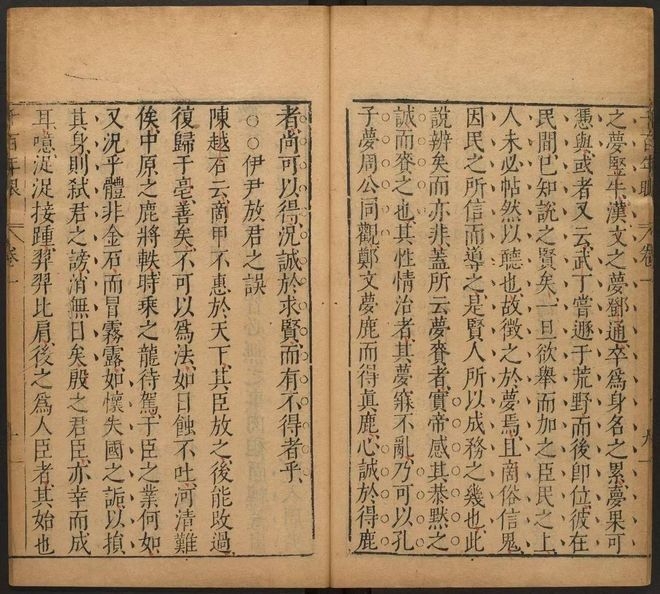 之夢豎牛漢文之夢鄧通卒爲身名之累夢果可
憑與或者又云武丁嘗遯于荒野而後卽位彼在
民間已知說之賢矣一旦欲舉而加之臣民之上
人未必帖然以聽也故徴之於夢焉且商俗信鬼
因民之所信而導之是賢人所以成務之幾也此
說辨矣而亦非蓋所云夢賚者實帝感其恭黙之
誠而賚之也其性情治者其夢寐不亂乃可以孔
子夢周公同觀鄭文夢鹿而得眞鹿心誠於得鹿
者尚可以得況誠於求賢而有不得者乎
○○伊尹放君之誤
陳越石云啇甲不惠於天下其臣放之後能改過
復歸于亳善矣不可以爲法如日蝕不吐河清難
俟中原之鹿將軼時乘之龍待駕于臣之業何如
又況乎體非金石而冒霧露如懷失國之詬以損
其身則弒君之謗消無日矣殷之君臣亦幸而成
耳噫浞浞接踵羿羿比肩後之爲人臣者其始也
千百年眼
卷一